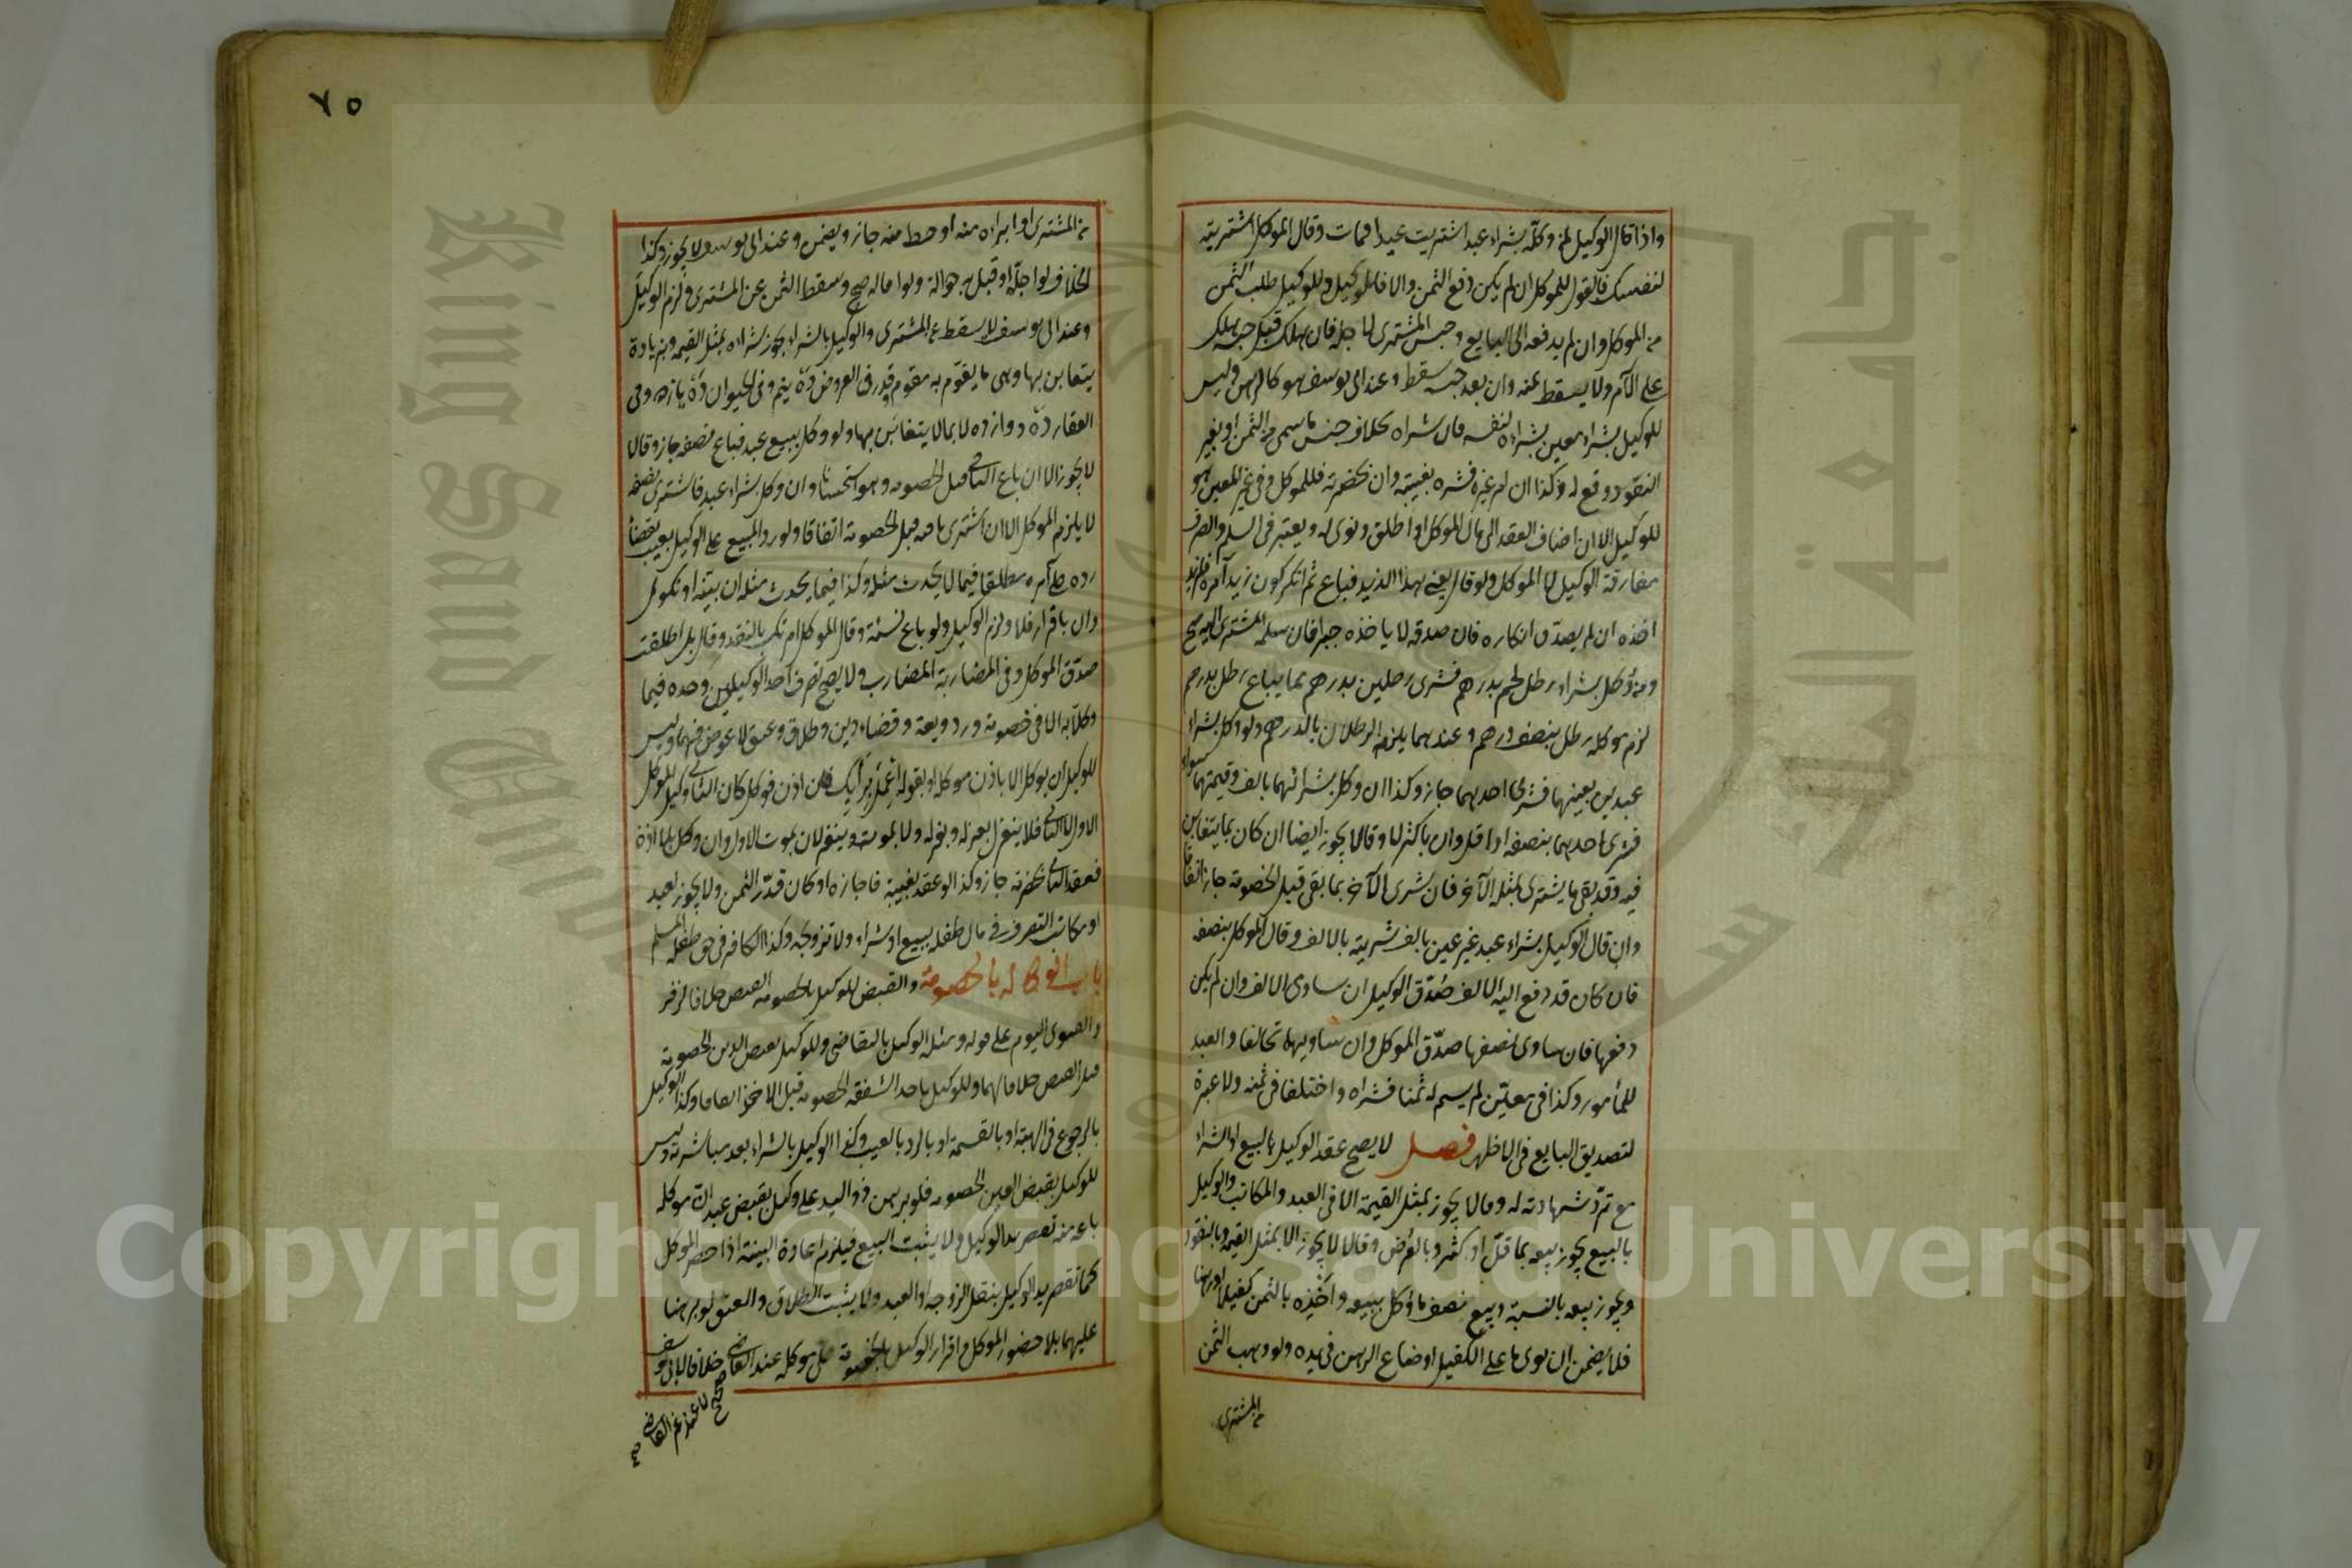 واذا قال الوكيل لمن وكله بشراء عبد اشتريت عبدا فمات وقال الموكل اشتريته
لنفسك فالقول للموكل ان لم يكن دفع الثمن والا فللوكيل وللوكيل طلب الثمن
من الموكل وان لم يدفعه الى البايع وحبس المشترى لاجله فان هلك قبل حبسه هلك
على الآمر ولا يسقط ثمنه وان بعد حبسه سقط وعند ابى يوسف هو كالرهن وليس
للوكيل بشراء معين شراءه لنفسه فان شراه بخلاف جنس ما سمى من الثمن او بغير
النقود وقع له وكذا ان امر غيره فشراه بغيبته وان بحضرته فللموكل وفى غير المعين هو
للوكيل الا ان اضاف العقد الى مال الموكل او اطلق ونوى له ويعتبر فى السلم والصرف
مفارقة الوكيل لا الموكل ولو قال بعنى هذا لزيد فباع ثم انكر كون زيد آمره فلزيد
اخذه ان لم يصدق انكاره فان صدقه لا ياخذه جبرا فان سلمه المشترى اليه صح
ومن وكل بشراء رطل لحم بدرهم فشرى رطلين بدرهم مما يباع رطل بدرهم
لزم موكله رطل بنصف درهم وعندهما يلزمه الرطلان بالدرهم ولو وكل بشراء
عبدين بعينهما فشرى احدهما جاز وكذا ان وكل بشرائهما بالف وقيمتهما سواء
فشرى احدهما بنصفه او اقل وان باكثر لا وقالا يجوز ايضا ان كان بما يتغابن
فيه وقد بقى ما يشترى بمثله الآخر فان شرى الآخر بما بقى قبل الخصومة جاز اتفاقا
وان قال الوكيل بشراء عبد غير عين بالف شريته بالالف وقال الموكل بنصفه
فان كان قد دفع اليه الالف صدق الوكيل ان ساوى الالف وان لم يكن
دفعها فان ساوى نصفها صدق الموكل وان ساويها تحالفا والعبد
للمأمور وكذا فى معين لم يسم له ثمنا فشراه واختلفا فى ثمنه ولا عبرة
لتصديق البايع فى الاظهر فصل لا يصح عقد الوكيل بالبيع او الشراء
مع من ترد شهادته له وقالا يجوز بمثل القيمة الا فى العبد والمكاتب والوكيل
بالبيع يجوز بيعه بما قل او كثر وبالعرض وقالا لا يجوز الا بمثل القيمة وبالنقود
ويجوز بيعه بالنسية وبيع نصف ما وكل ببيعه واخذه بالثمن كفيلا او رهنا
فلا يضمن ان توى ما على الكفيل او ضاع الرهن فى يده ولو وهب الثمن
من المشترى
٧٥
من المشترى او ابراه منه او حط منه جاز ويضمن وعند ابى يوسف لا يجوز وكذا
الخلاف لو اجله او قبل به حوالة ولو اقاله صح وسقط الثمن عن المشترى ولزم الوكيل
وعند ابى يوسف لا يسقط عن المشترى والوكيل بالشراء يجوز شراءه بمثل القيمة وبزيادة
يتغابن بها وهى ما يقوم به مقوم وقدر فى العروض ده نيم وفى الحيوان ده يازده وفى
العقار ده دوازده لا بما لا يتغابن بها ولو وكل ببيع عبد فباع نصفه جاز وقالا
لا يجوز الا ان باع الباقى قبل الخصومة وهو استحسان وان وكل بشراء عبد فاشترى نصفه
لا يلزم الموكل الا ان اشترى باقيه قبل الخصومة اتفاقا ولو رد المبيع على الوكيل بعيب بقضاء
رده على آمره مطلقا فيما لا يحدث مثله وكذا فيما يحدث مثله ان ببينة او نكول
وان باقرار فلا ولزم الوكيل ولو باع نسئة وقال الموكل امرتك بالنقد وقال بل اطلقت
صدق الموكل وفى المضاربة المضارب ولا يصح تصرف احد الوكيلين وحده فيما
وكلا به الا فى خصومة ورد وديعة وقضاء دين وطلاق وعتق لا عوض فيهما وليس
للوكيل ان يوكل الا باذن موكله او بقوله اعمل برأيك فان اذن فوكل كان الثانى وكيل الموكل
الاول لا الثانى فلا ينعزل بعزله ولا بموته وينعزلان بموت الاول وان وكل بلا اذنه
فعقد الثانى بحضرته جاز وكذا لو عقد بغيبته فاجازه او كان قدر الثمن ولا يجوز لعبد
او مكاتب التصرف فى مال طفله ببيع او شراء ولا تزويجه وكذا الكافر فى حق طفله المسلم
باب الوكالة بالخصومة والقبض للوكيل بالخصومة القبض خلافا لزفر
والفتوى اليوم على قوله ومثله الوكيل بالتقاضى وللوكيل بقبض الدين الخصومة
قبل القبض خلافا لهما وللوكيل باخذ الشفعة الخصومة قبل الاخذ اتفاقا وكذا الوكيل
بالرجوع فى الهبة او بالقسمة او بالرد بالعيب وكذا الوكيل بالشراء بعد مباشرته وليس
للوكيل بقبض العين الخصومة فلو برهن ذو اليد على وكيل بقبض عبد ان موكله
باعه منه تقصر يد الوكيل ولا يثبت البيع فيلزم اعادة البينة اذا حضر الموكل
كما تقصر يد الوكيل بنقل الزوجة او العبد ولا يثبت الطلاق والعتق لو برهنا
عليهما بلا حضور الموكل واقرار الوكيل بالخصومة على موكله عند القاضى صحيح خلافا لابى يوسف
لا عند غير القاضى